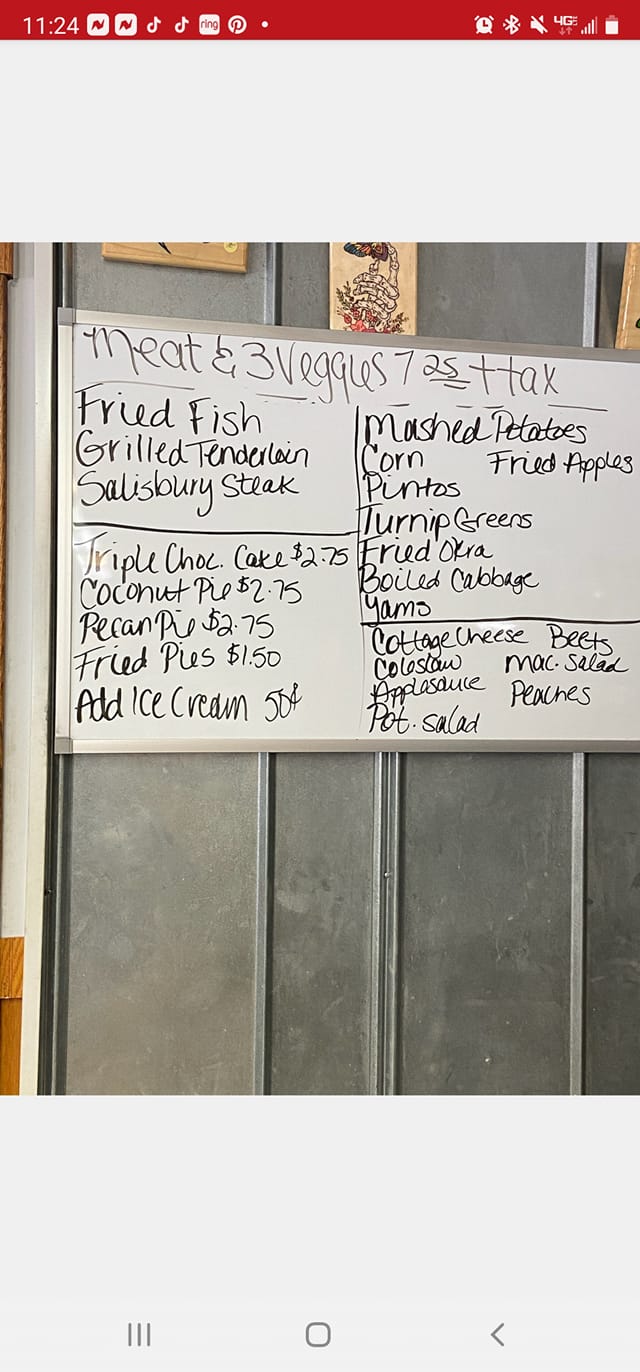 11:24
ring
4GE
Meat & 3 Veggies 7 25 + tax
Fried Fish
Grilled Tenderloin
Salisbury Steak
Triple Choc. Cake $2.75
Coconut Pie $2.75
Pecan Pie $2.75
Fried Pies $1.50
Add Ice Cream 50¢
Mashed Potatoes
Corn Fried Apples
Pintos
Turnip Greens
Fried Okra
Boiled Cabbage
Yams
Cottage Cheese Beets
Coleslaw Mac. Salad
Applesauce Peaches
Pot. Salad